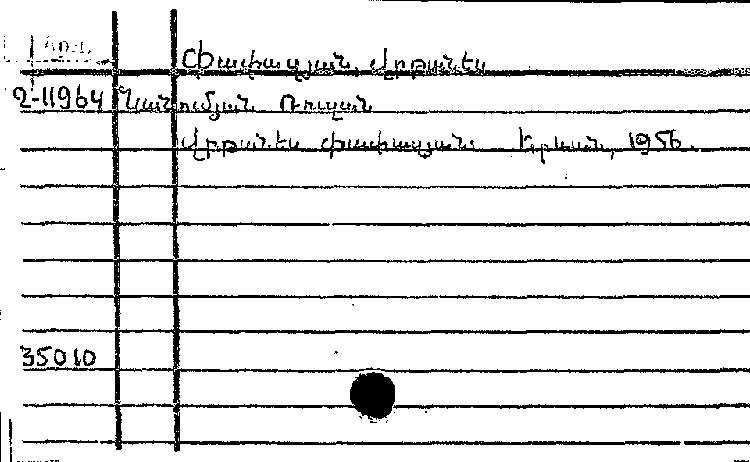 Փափազյան, Վրթանես
2-11964 Նանումյան Ռուզան
Վրթանես Փափազյան. Երևան, 1956.
35010